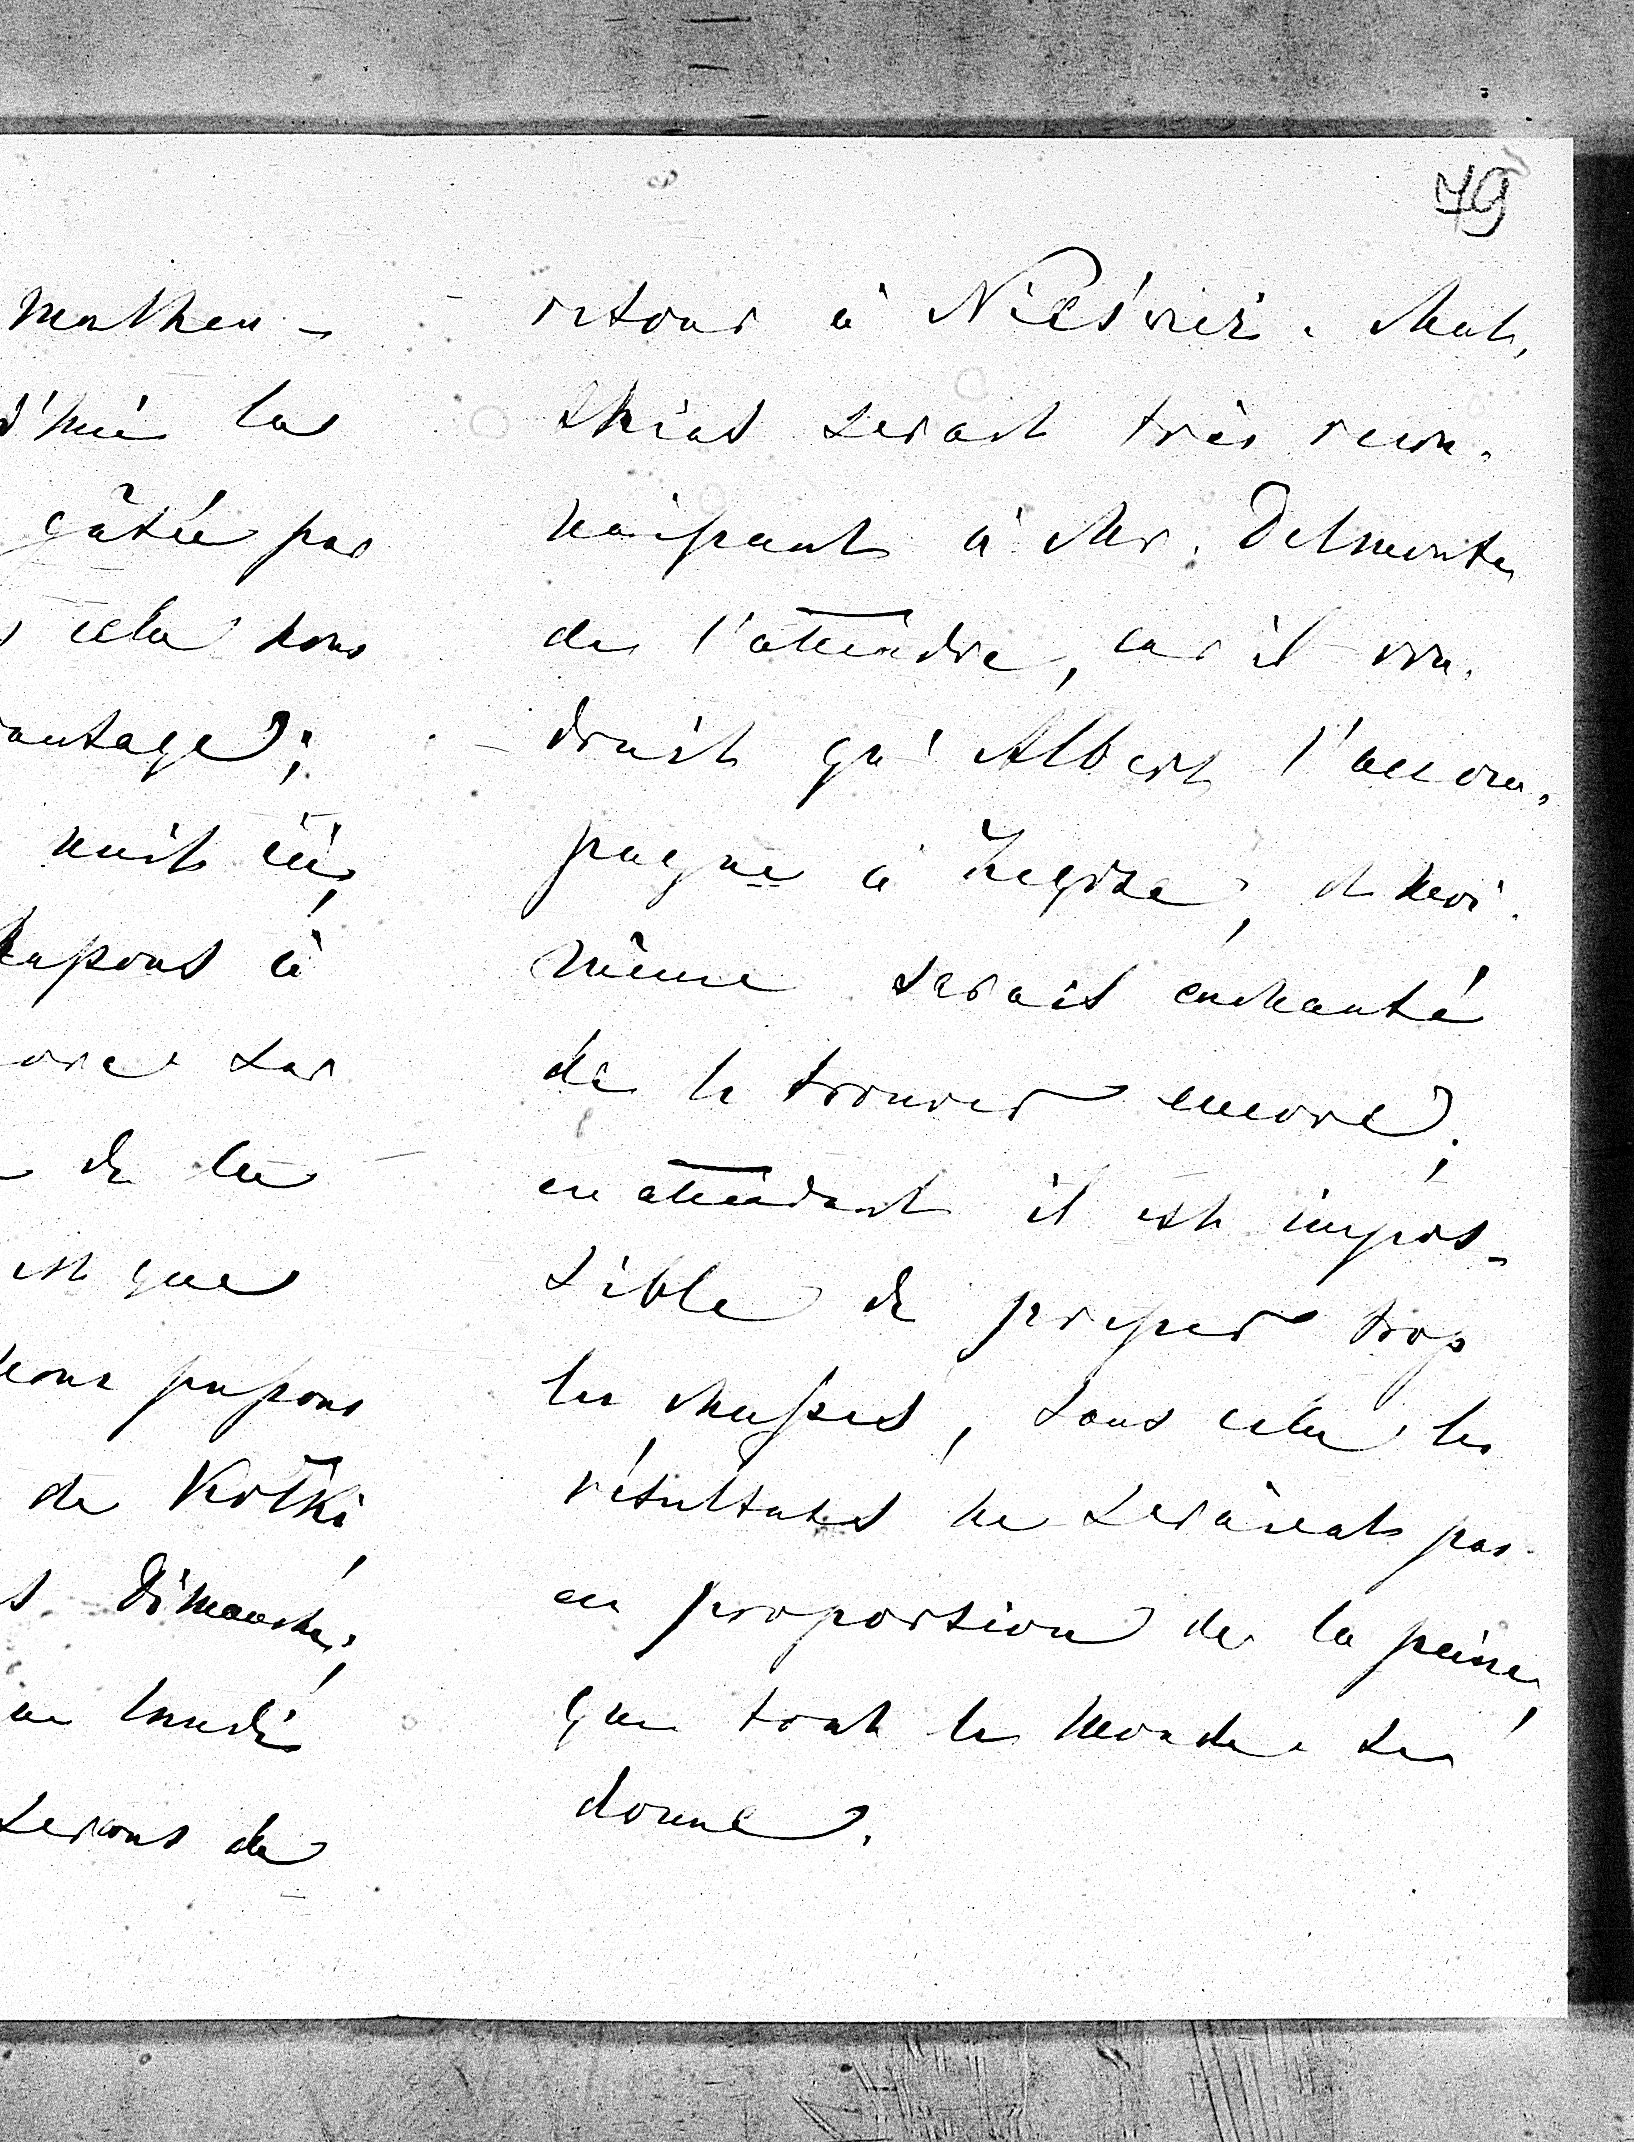 49
malheu-
d'hui les
gâtée par
cela nous
antage;
nuit ici,
chassons à
ore sur
de la
est que
nous passons
de Kotki,
s Dimanche;
au lundi
serons de
retour à Nieśwież. Mat,
thias serait très recon,
naissant à Mr. Delmonte
de l'attendre, car il vou,
drait qu'Albert l'accom,
pagne à Zegrze; et moi
même serait enchanté
de le trouver encore;
en attendant il est impos-
sible de presser trop
les chasses, sans cela les
résultats ne seraient pas
en proportion de la peine,
que tout le monde se
donne.